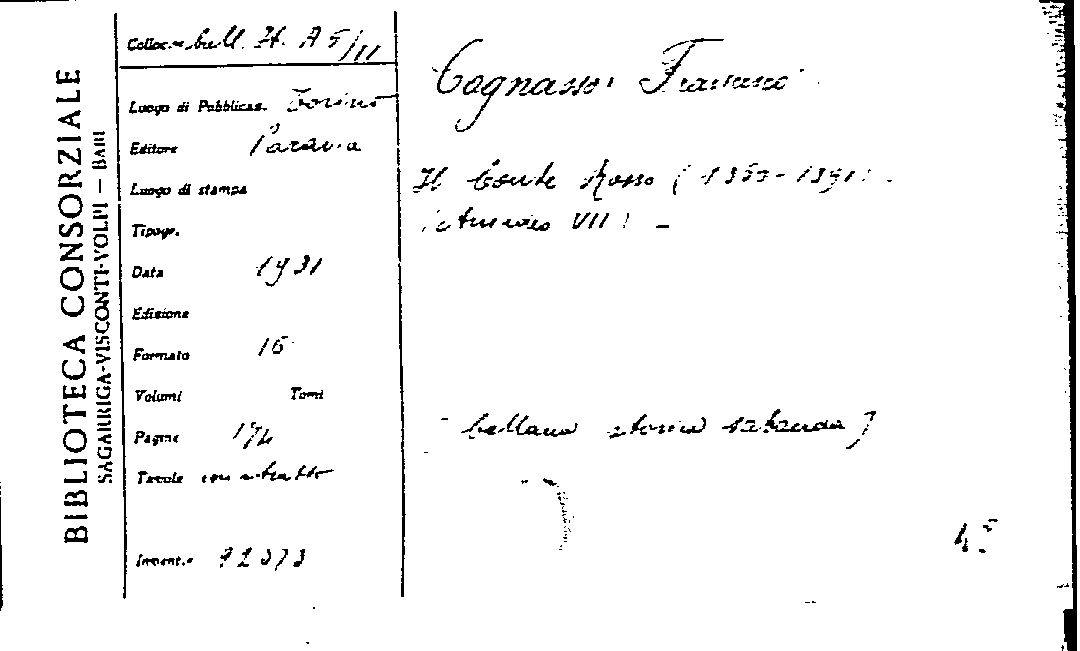 BIBLIOTECA CONSORZIALE
SAGARRIGA-VISCONTI-VOLPI — BARI
Colloc.ne Coll. It. A 5/11
Luogo di Pubblicaz. Torino
Editore Paravia
Luogo di stampa
Tipogr.
Data 1931
Edizione
Formato 16
Volumi Tomi
Pagine 174
Tavole con ritratto
Invent.e
Cognasso Francesco
Il Conte Rosso (1360-1391)
(Amedeo VII) —
(Collana storica sabauda)